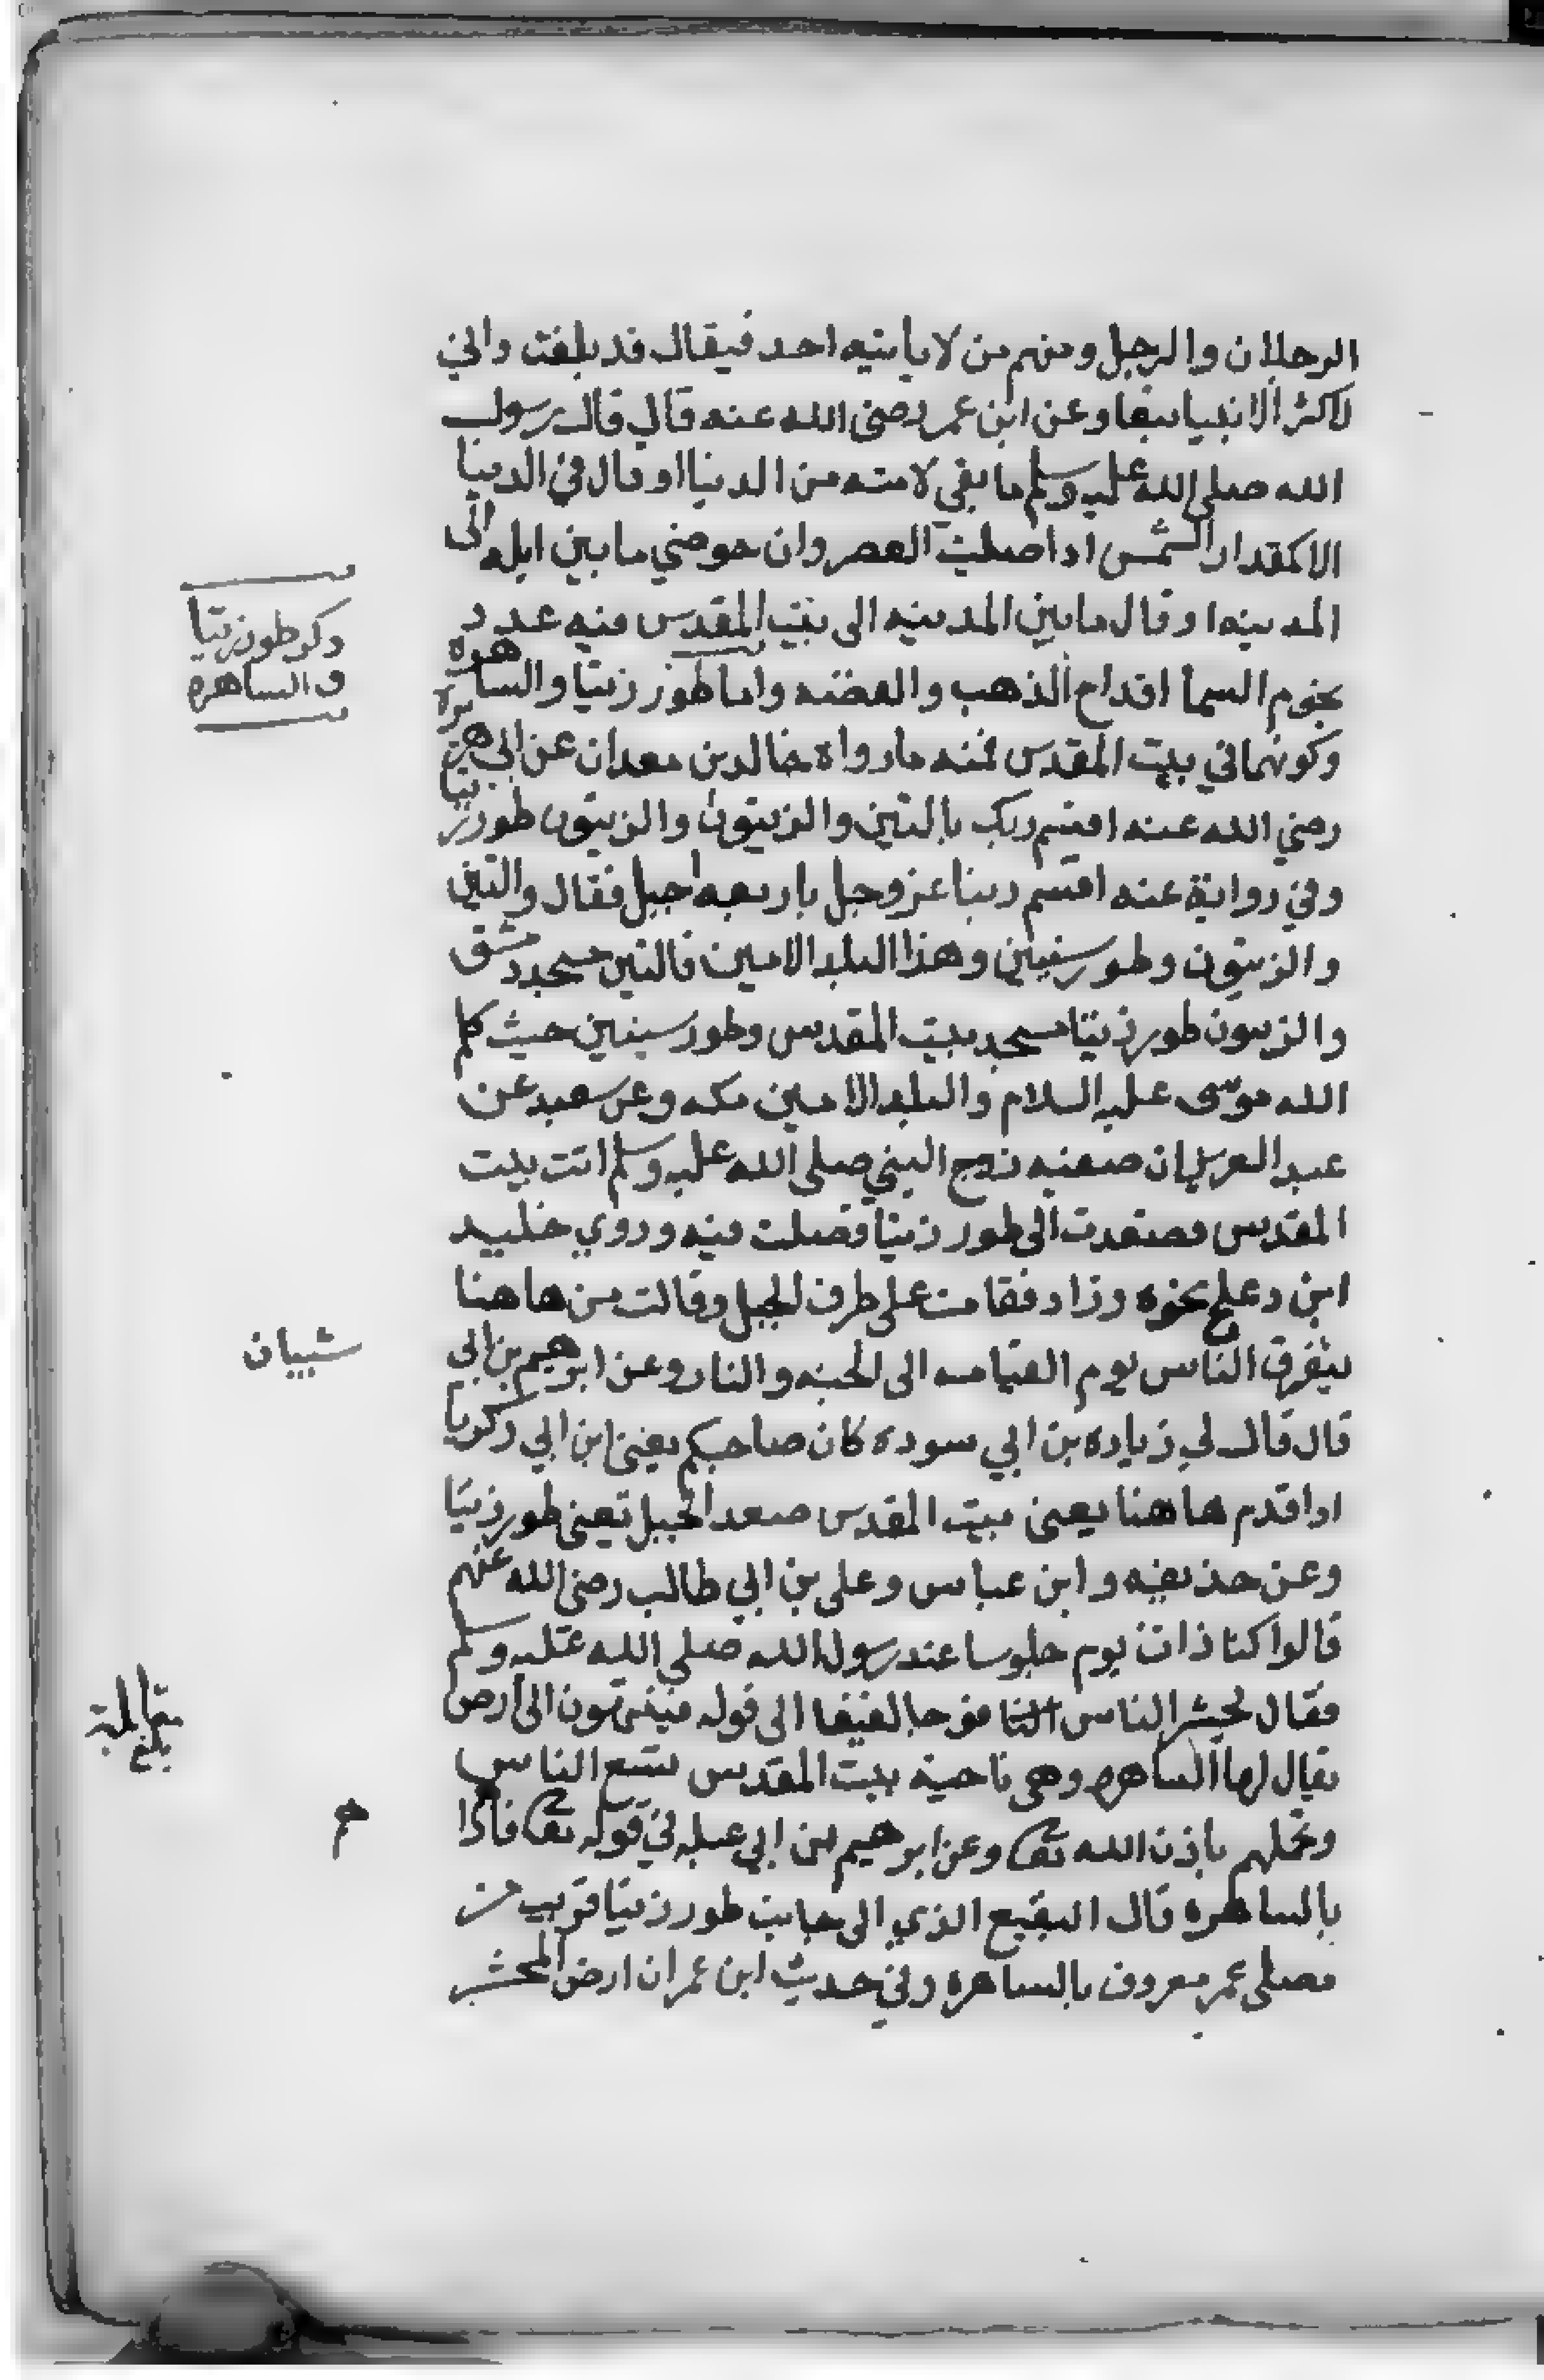 الرجلان والرجل ومنهم من لا يأتيه احد فيقال قد بلغت واني
لاكثر الانبيا تبعا وعن ابن عمر رضي الله عنه قال قال رسول
الله صلى الله عليه وسلم ما بقي لامته من الدنيا او قال في الدنيا
الا كمقدار الشمس اذا صليت العصر وان حوضي ما بين ايله الى
المدينه او قال ما بين المدينه الى بيت المقدس فيه عدد
نجوم السما اقداح الذهب والفضه واما طور زيتا والساهره
وكونهما في بيت المقدس فمنه ما رواه خالد بن معدان عن ابي هريره
رضي الله عنه اقسم ربك بالتين والزيتون والزيتون طور زيتا
وفي رواية عنه اقسم ربنا عز وجل باربعه اجبل فقال والتين
والزيتون وطور سينين وهذا البلد الامين فالتين مسجد دمشق
والزيتون طور زيتا مسجد بيت المقدس وطور سينين حيث كلم
الله موسى عليه السلام والبلد الامين مكه وعن سعيد عن
عبد العزيز ان صفيه زوج النبي صلى الله عليه وسلم اتت بيت
المقدس فصعدت الى طور زيتا فصلت فيه وروي خليد
ابن دعلج نحوه وزاد فقامت على طرف الجبل وقالت من هاهنا
يتفرق الناس يوم القيامه الى الجنه والنار وعن ابرهيم بن ابي
شيبان
قال قال لي زياده بن ابي سوده كان صاحبكم يعني ابن ابي زكريا
اذا قدم هاهنا يعني بيت المقدس صعد الجبل يعني طور زيتا
وعن حذيفه وابن عباس وعلي بن ابي طالب رضي الله عنهم
قالوا كنا ذات يوم جلوسا عند رسول الله صلى الله عليه وسلم
فقال يحشر الناس فوجا لفيفا الى قوله فينتهون الى ارض
يقال لها الساهره وهي ناحية بيت المقدس تسع الناس
وتحملهم باذن الله تعالى وعن ابرهيم بن ابي عبله في قوله تعالى فاذا
هم
بالساهره قال البقيع الذي الى جانب طور زيتا قريب من
مصلى عمر معروف بالساهره وفي حديث ابن عمر ان ارض المحشر
ذكر طور زيتا
والساهره
بلغ مقابلة